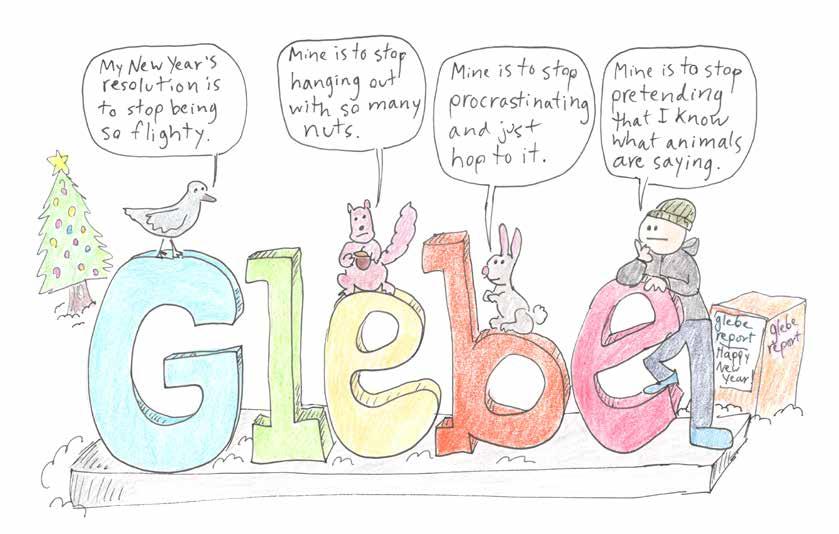 My New Year's
resolution is
to stop being
so flighty.
Mine is to stop
hanging out
with so many
nuts.
Mine is to stop
procrastinating
and just
hop to it.
Mine is to stop
pretending
that I know
what animals
are saying.
Glebe
glebe
report
Happy
New
Year!
glebe
report